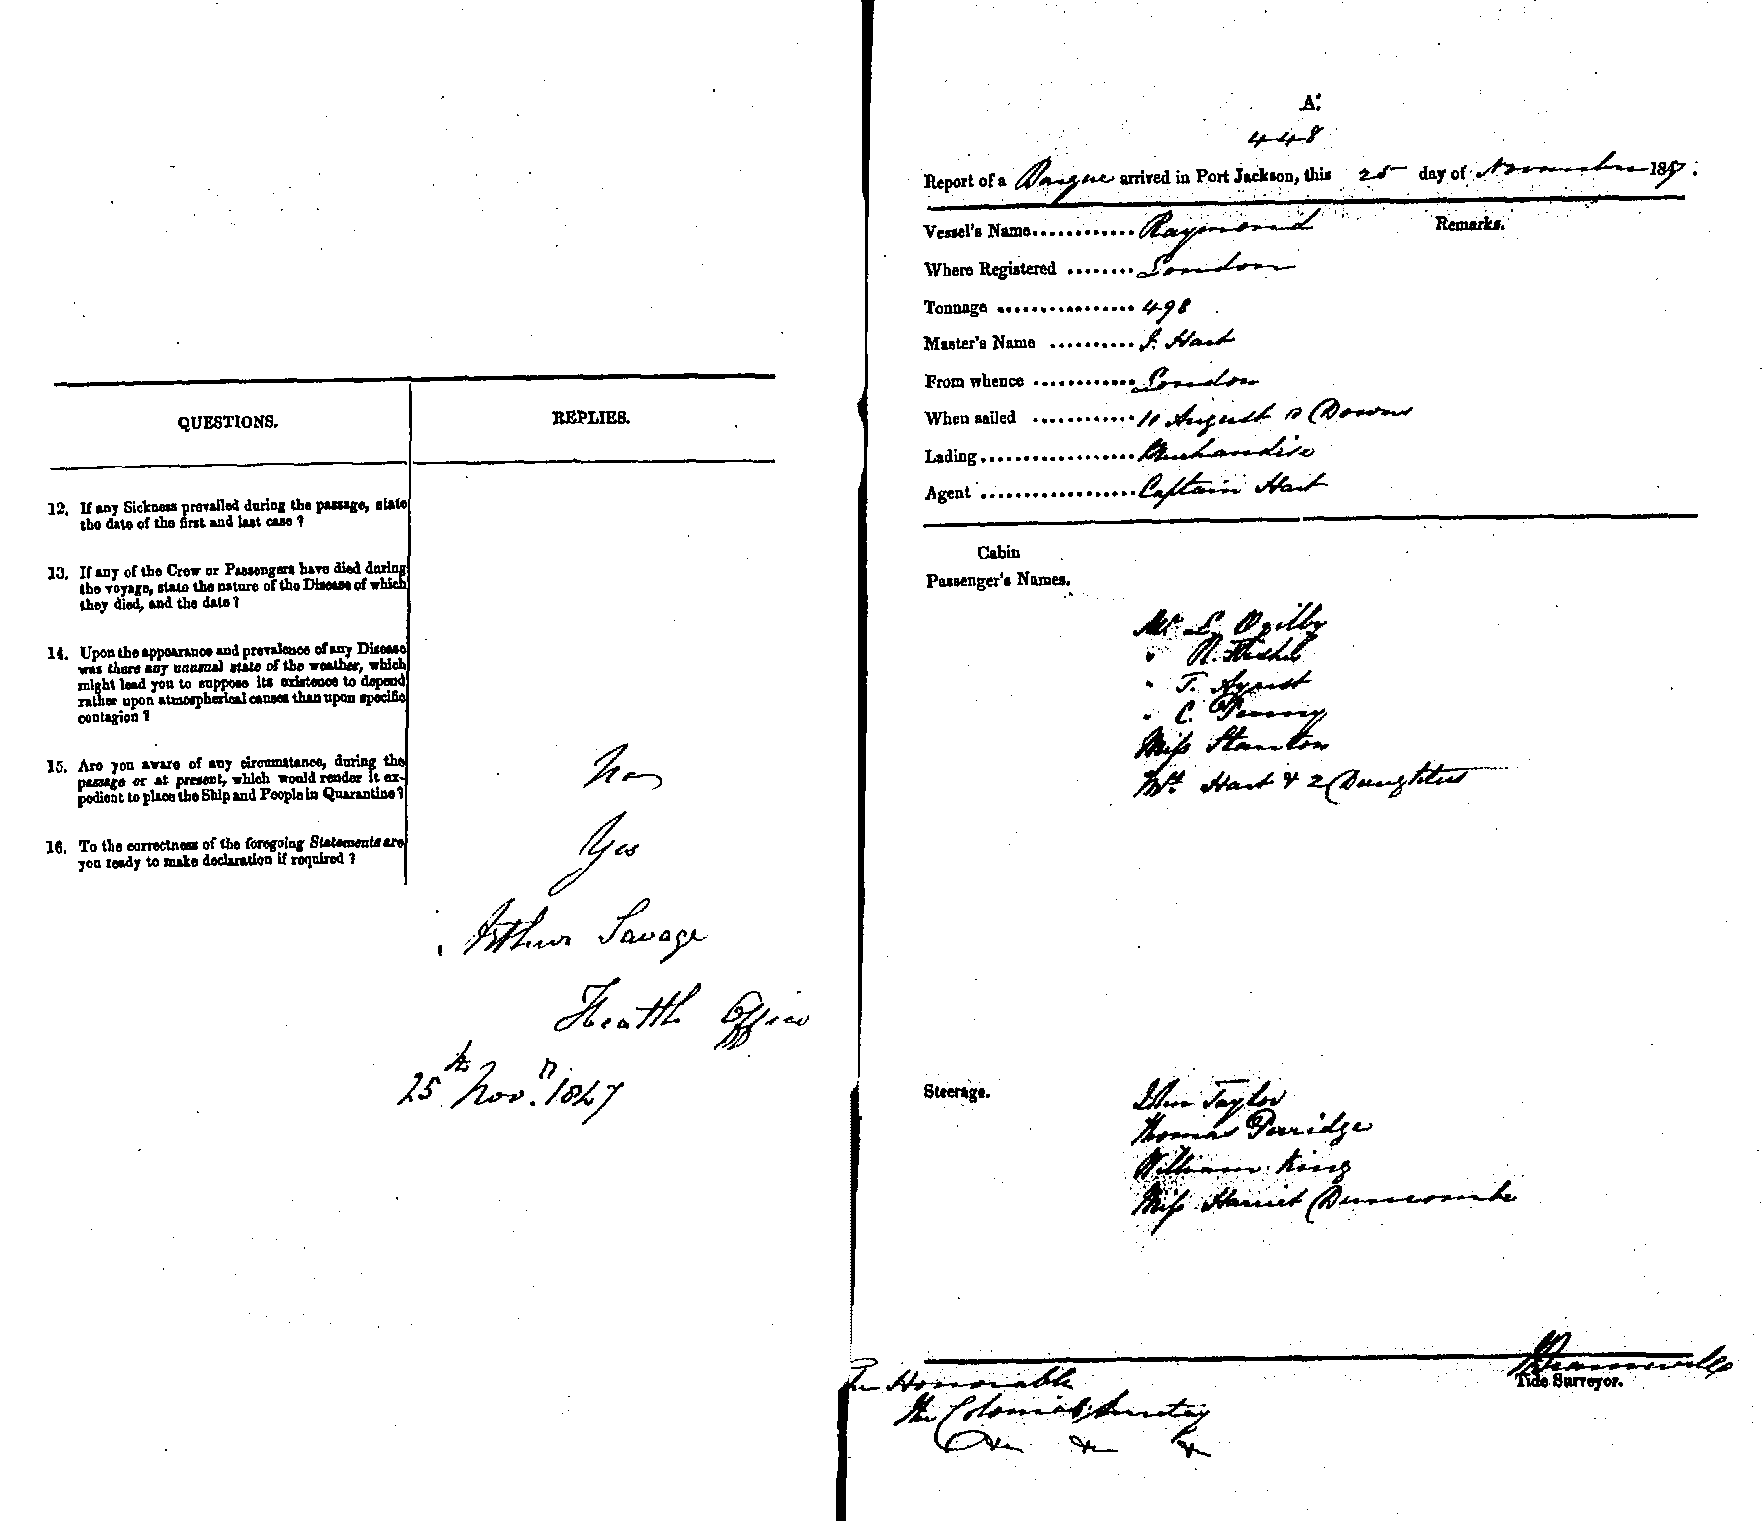 QUESTIONS.
REPLIES.
12. If any Sickness prevailed during the passage, state
the date of the first and last case ?
13. If any of the Crew or Passengers have died during
the voyage, state the nature of the Disease of which
they died, and the date ?
14. Upon the appearance and prevalence of any Disease
was there any unusual state of the weather, which
might lead you to suppose its existence to depend
rather upon atmospherical causes than upon specific
contagion ?
15. Are you aware of any circumstance, during the
passage or at present, which would render it ex-
pedient to place the Ship and People in Quarantine ?
No
16. To the correctness of the foregoing Statements are
you ready to make declaration if required ?
Yes
Arthur Savage
Health Officer
25th Novr. 1847
A.
448
Report of a Barque arrived in Port Jackson, this 25 day of November 1847.
Vessel's Name............ Raymond
Remarks.
Where Registered ........ London
Tonnage ................ 498
Master's Name .......... J. Hart
From whence ............ London
When sailed ............ 11 August Downs
Lading.................. Merchandise
Agent ................... Captain Hart
Cabin
Passenger's Names.
Mr L. Ogilby
" R.
" T.
" C. Penny
Miss Stanton
Mrs. Hart & 2 Daughters
Steerage.
John Taylor
Thomas Perridge
William King
Miss Harriet Duncombe
Tide Surveyor.
The Honorable
The Colonial Secretary
&c &c &c